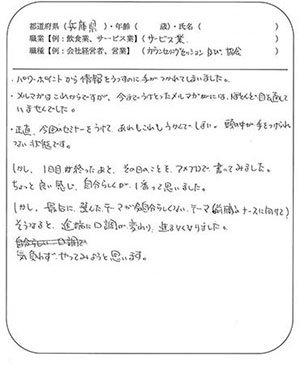 都道府県（兵庫県）・年齢（　　歳）・氏名（　　　　）
職業【例：飲食業、サービス業】（サービス業　　　）
職種【例：会社経営者、営業】（カウンセリングセッション 協会）
・パワーポイントから情報をうつすのに手がつかれてしまいました。
・メルマガはこれからですが、今までうけとったメルマガには、ほとんど目を通して
いませんでした。
・正直、今回のセミナーをうけて、あれもこれもうかんでしまい、頭の中が手をつけられ
ない状態です。
しかし、1日目が終ったあと、その日のことを、アメブロで書いてみました。
ちょっと良い感じ、自分らしくが、1番って思いました。
しかし、最后に、選んだテーマが自分らしくない、テーマ（ ナースに向けて）
そうなると、途端に口調が変わり、進まなくなりました。
自分らしい口調で
気負わず、やってみようと思います。